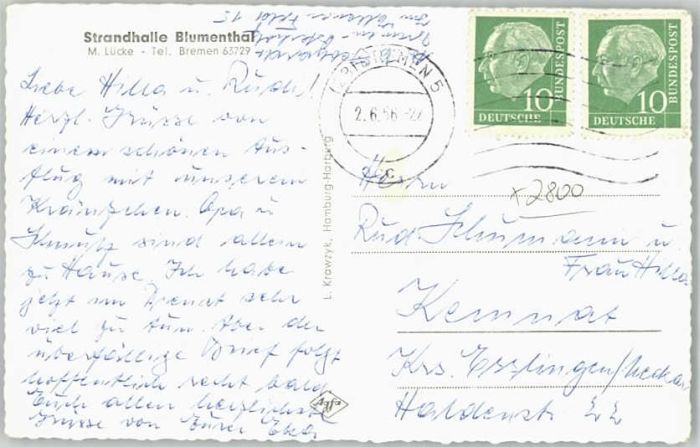 Strandhalle Blumenthal
M. Lücke - Tel. Bremen 63729
Liebe Hilla u. Rudi!
Herzl. Grüsse von
einem schönen Aus-
flug mit unserem
Kränzchen. Opa u.
sind allein
zu Hause. Ich habe
jetzt im Dienst sehr
viel zu tun. Aber der
überfällige Brief folgt
hoffentlich recht bald.
Euch allen herzlichste
Grüsse von Eurer
BREMEN 5
2.6.56
c
10
DEUTSCHE
BUNDESPOST
10
DEUTSCHE
BUNDESPOST
L. Krawzyk, Hamburg-Harburg
Agfa
+2800
Herrn
Rud. Schumann u.
Frau Hilla
Kemnat
Krs. Esslingen/Neckar
Haldenstr. 22